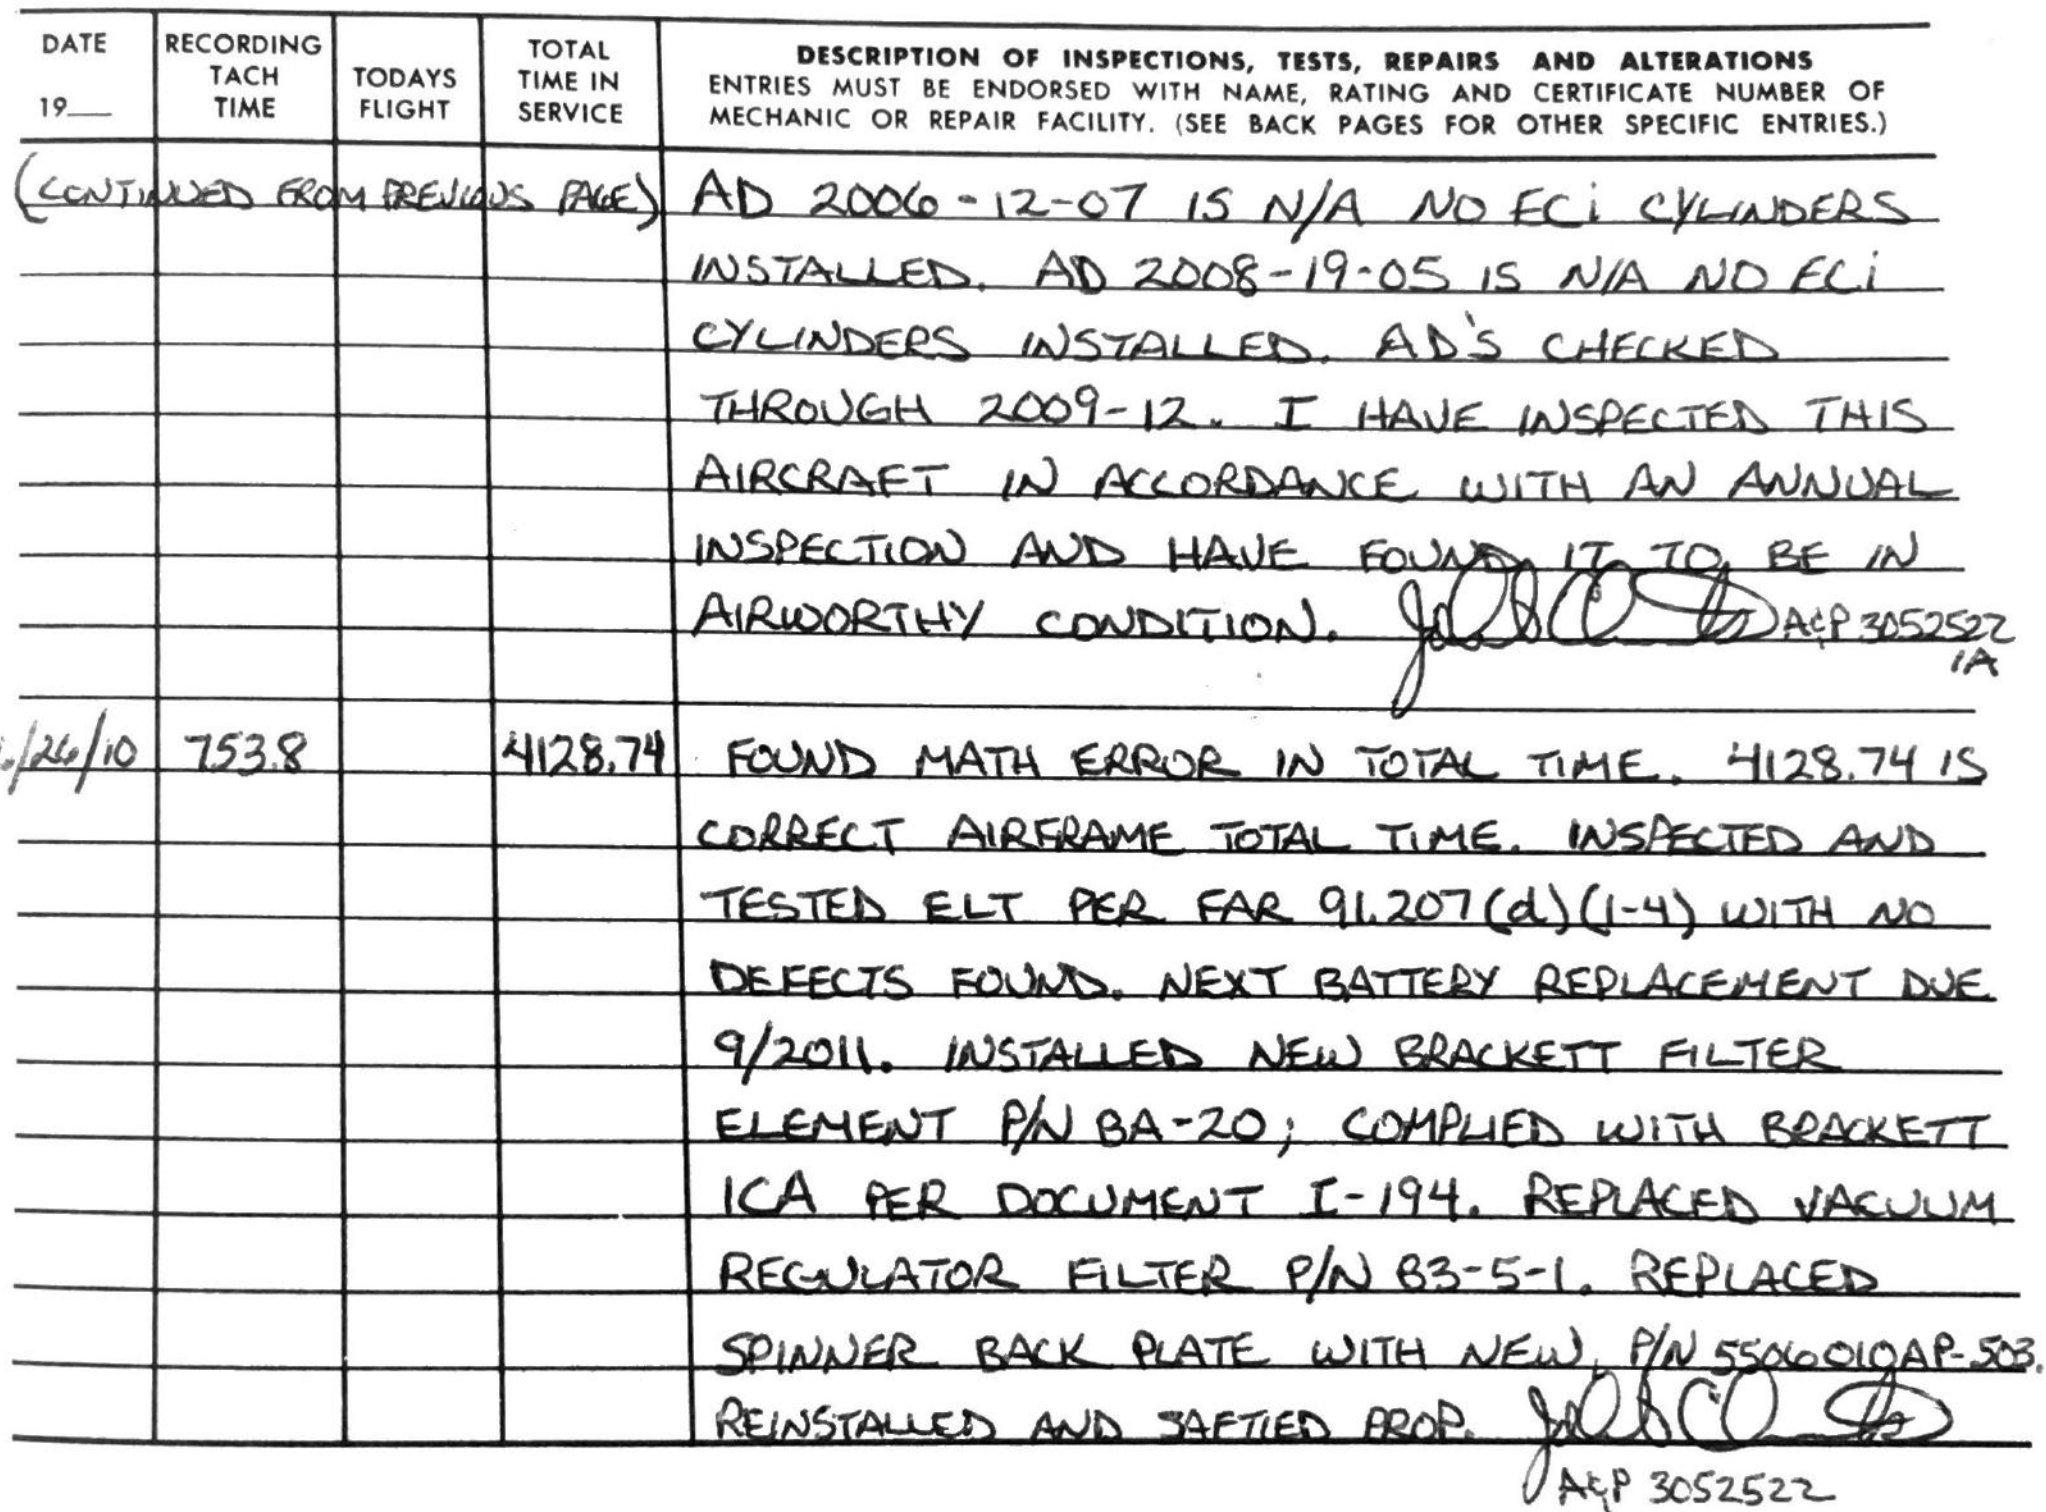 DATE
19__
RECORDING
TACH
TIME
TODAYS
FLIGHT
TOTAL
TIME IN
SERVICE
DESCRIPTION OF INSPECTIONS, TESTS, REPAIRS AND ALTERATIONS
ENTRIES MUST BE ENDORSED WITH NAME, RATING AND CERTIFICATE NUMBER OF
MECHANIC OR REPAIR FACILITY. (SEE BACK PAGES FOR OTHER SPECIFIC ENTRIES.)
(CONTINUED FROM PREVIOUS PAGE) AD 2006-12-07 IS N/A NO ECi CYLINDERS
INSTALLED. AD 2008-19-05 IS N/A NO ECi
CYLINDERS INSTALLED. AD'S CHECKED
THROUGH 2009-12. I HAVE INSPECTED THIS
AIRCRAFT IN ACCORDANCE WITH AN ANNUAL
INSPECTION AND HAVE FOUND IT TO BE IN
AIRWORTHY CONDITION. A&P 3052522
IA
/26/10 753.8 4128.74 FOUND MATH ERROR IN TOTAL TIME. 4128.74 IS
CORRECT AIRFRAME TOTAL TIME. INSPECTED AND
TESTED ELT PER FAR 91.207(d)(1-4) WITH NO
DEFECTS FOUND. NEXT BATTERY REPLACEMENT DUE
9/2011. INSTALLED NEW BRACKETT FILTER
ELEMENT P/N BA-20; COMPLIED WITH BRACKETT
ICA PER DOCUMENT I-194. REPLACED VACUUM
REGULATOR FILTER P/N B3-5-1. REPLACED
SPINNER BACK PLATE WITH NEW, P/N 5506010AP-503.
REINSTALLED AND SAFTIED PROP.
A&P 3052522